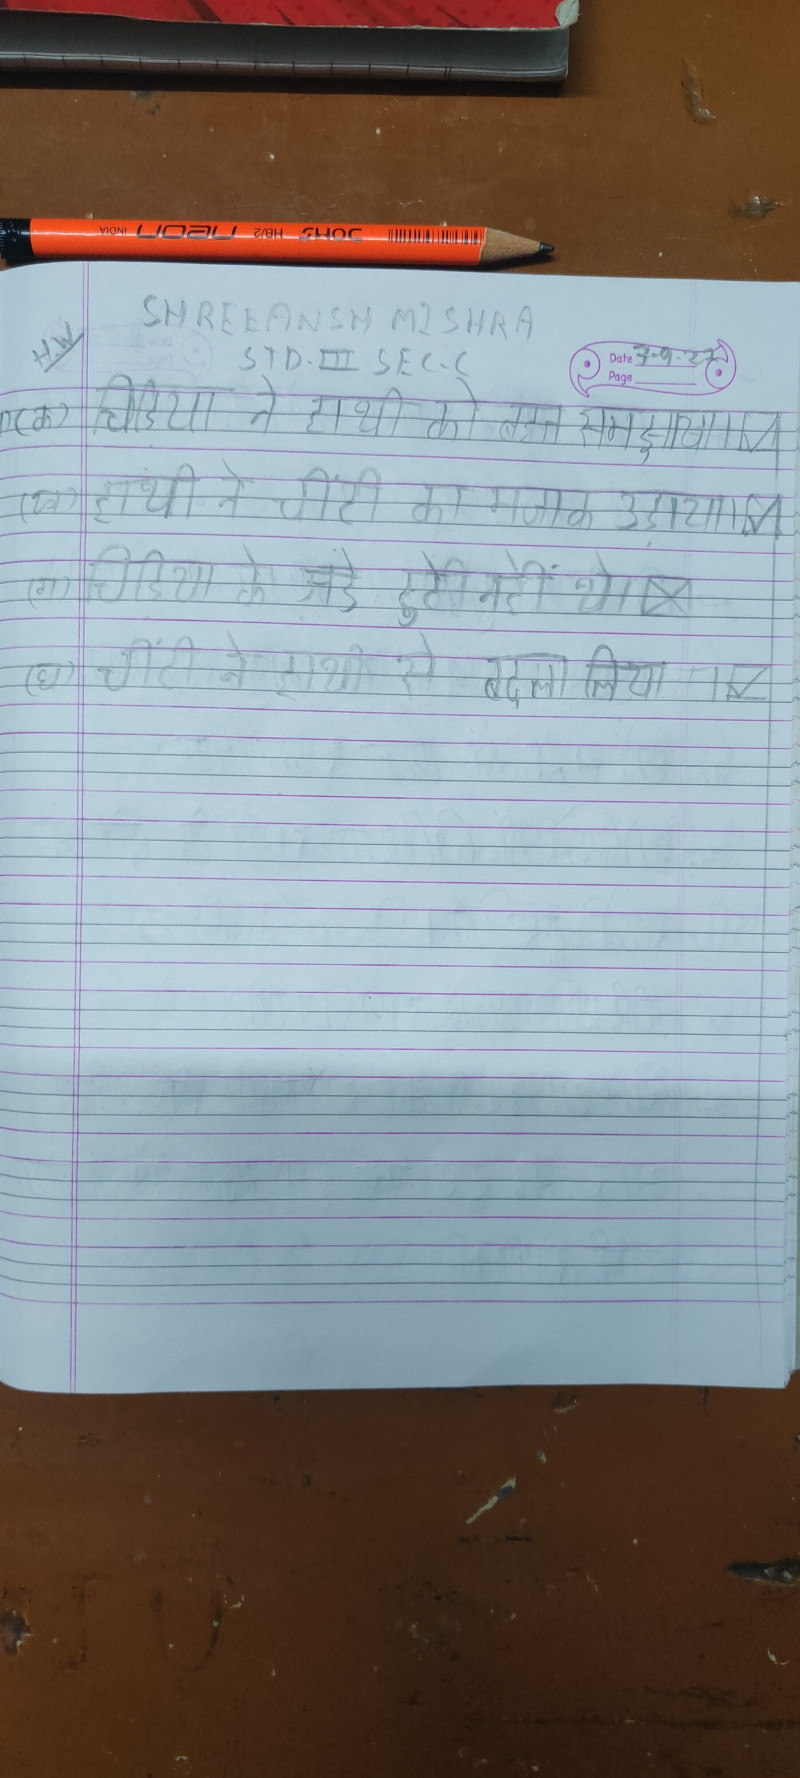 JOHS HB/2 neon INDIA
SHREEANSH MISHRA
H.W
STD.-III SEC.-C
Date 7-9-27
Page
(क) चिडिया ने हाथी को बहुत समझाया।
(ख) हाथी ने चींटी का मजाक उड़ाया।
(ग) चिडिया के अंडे टुटे नहीं थे।
चींटी ने हाथी से बदला लिया ।